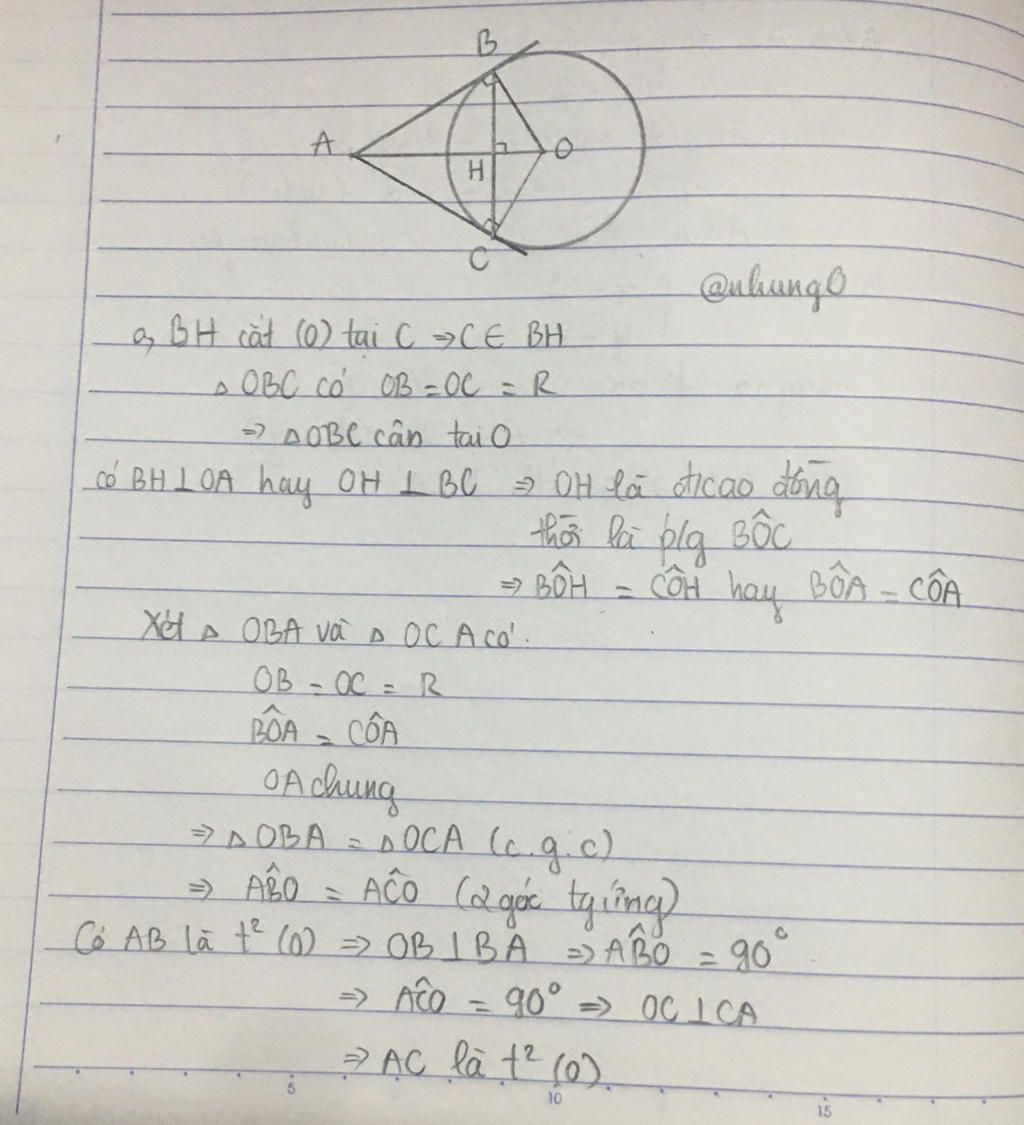 B
A
O
H
C
@nhungO
a, BH cắt (O) tại C ⇒ C ∈ BH
△ OBC có OB = OC = R
⇒ △OBC cân tại O
có BH ⊥ OA hay OH ⊥ BC ⇒ OH là đ/cao đồng
thời là p/g BÔC
⇒ BÔH = CÔH hay BÔA = CÔA
Xét △ OBA và △ OCA có:
OB = OC = R
BÔA = CÔA
OA chung
⇒ △OBA = △OCA (c.g.c)
⇒ AB̂O = AĈO (2 góc tg ứng)
Có AB là t² (O) ⇒ OB ⊥ BA ⇒ AB̂O = 90°
⇒ AĈO = 90° ⇒ OC ⊥ CA
⇒ AC là t² (O)
5 10 15